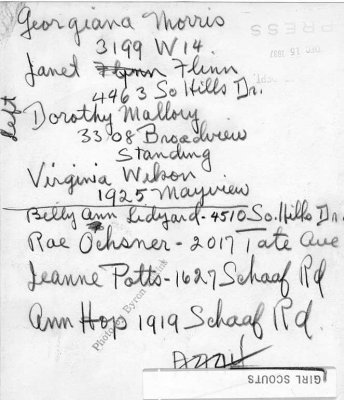 Georgiana Morris
3199 W 14.
Janet Flynn Flinn
4963 So Hills Dr.
left
Dorothy Mallory
3308 Broadview
Standing
Virginia Wilson
1925 Mayview
Betty Ann Lidyard - 4510 So. Hills Dr.
Rae Ochsner - 2017 Tate Ave
Jeanne Potts - 1627 Schaaf Rd
Ann Hop 1919 Schaaf Rd.
Photo by Byron
PRESS
DEC 15 1937
GIRL SCOUTS